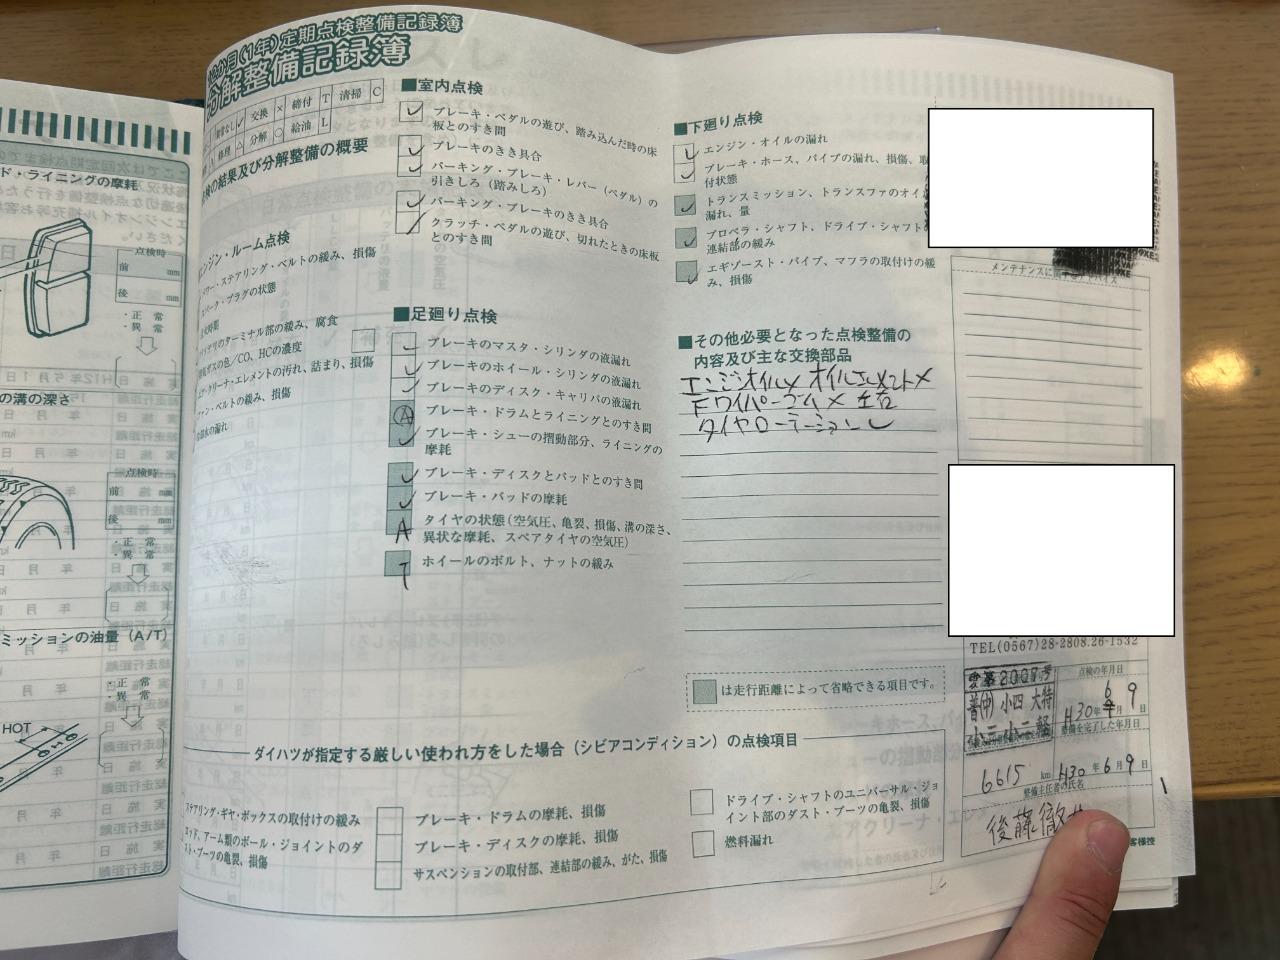 ド・ライニングの摩耗
点検時
前 mm
後 mm
・正 常
・異 常
の溝の深さ
点検時
前 mm
後 mm
・正 常
・異 常
ミッションの油量（A/T）
・正 常
・異 常
HOT
(1年) 定期点検整備記録簿
分解整備記録簿
交換 × 締付 T 清掃 C
修理 △ 分解 ○ 給油 L
検の結果及び分解整備の概要
エンジン・ルーム点検
パワー・ステアリング・ベルトの緩み、損傷
スパーク・プラグの状態
点火時期
バッテリのターミナル部の緩み、腐食
排気ガスの色／CO、HCの濃度
エア・クリーナ・エレメントの汚れ、詰まり、損傷
ファン・ベルトの緩み、損傷
冷却水の漏れ
■室内点検
ブレーキ・ペダルの遊び、踏み込んだ時の床
板とのすき間
ブレーキのきき具合
パーキング・ブレーキ・レバー（ペダル）の
引きしろ（踏みしろ）
パーキング・ブレーキのきき具合
クラッチ・ペダルの遊び、切れたときの床板
とのすき間
■足廻り点検
ブレーキのマスタ・シリンダの液漏れ
ブレーキのホイール・シリンダの液漏れ
ブレーキのディスク・キャリパの液漏れ
Ⓐ ブレーキ・ドラムとライニングとのすき間
ブレーキ・シューの摺動部分、ライニングの
摩耗
ブレーキ・ディスクとパッドとのすき間
ブレーキ・パッドの摩耗
A タイヤの状態（空気圧、亀裂、損傷、溝の深さ、
異状な摩耗、スペアタイヤの空気圧）
T ホイールのボルト、ナットの緩み
■下廻り点検
エンジン・オイルの漏れ
ブレーキ・ホース、パイプの漏れ、損傷、取
付状態
トランスミッション、トランスファのオイ
漏れ、量
プロペラ・シャフト、ドライブ・シャフト
連結部の緩み
エギゾースト・パイプ、マフラの取付けの緩
み、損傷
■その他必要となった点検整備の
内容及び主な交換部品
エンジンオイル× オイルエレメント×
Fワイパーゴム×
タイヤローテーション
は走行距離によって省略できる項目です。
メンテナンスに
TEL(0567)28-2808.26-1532
愛第2007号
普(中) 小四 大特
小三 小二 軽
点検の年月日
H30年 6月 9日
整備を完了した年月日
6615 km H30年 6月 9日
整備主任者の氏名
後藤
客様控
ダイハツが指定する厳しい使われ方をした場合（シビアコンディション）の点検項目
ステアリング・ギヤ・ボックスの取付けの緩み
ロッド、アーム類のボール・ジョイントのダ
スト・ブーツの亀裂、損傷
ブレーキ・ドラムの摩耗、損傷
ブレーキ・ディスクの摩耗、損傷
サスペンションの取付部、連結部の緩み、がた、損傷
ドライブ・シャフトのユニバーサル・ジョ
イント部のダスト・ブーツの亀裂、損傷
燃料漏れ